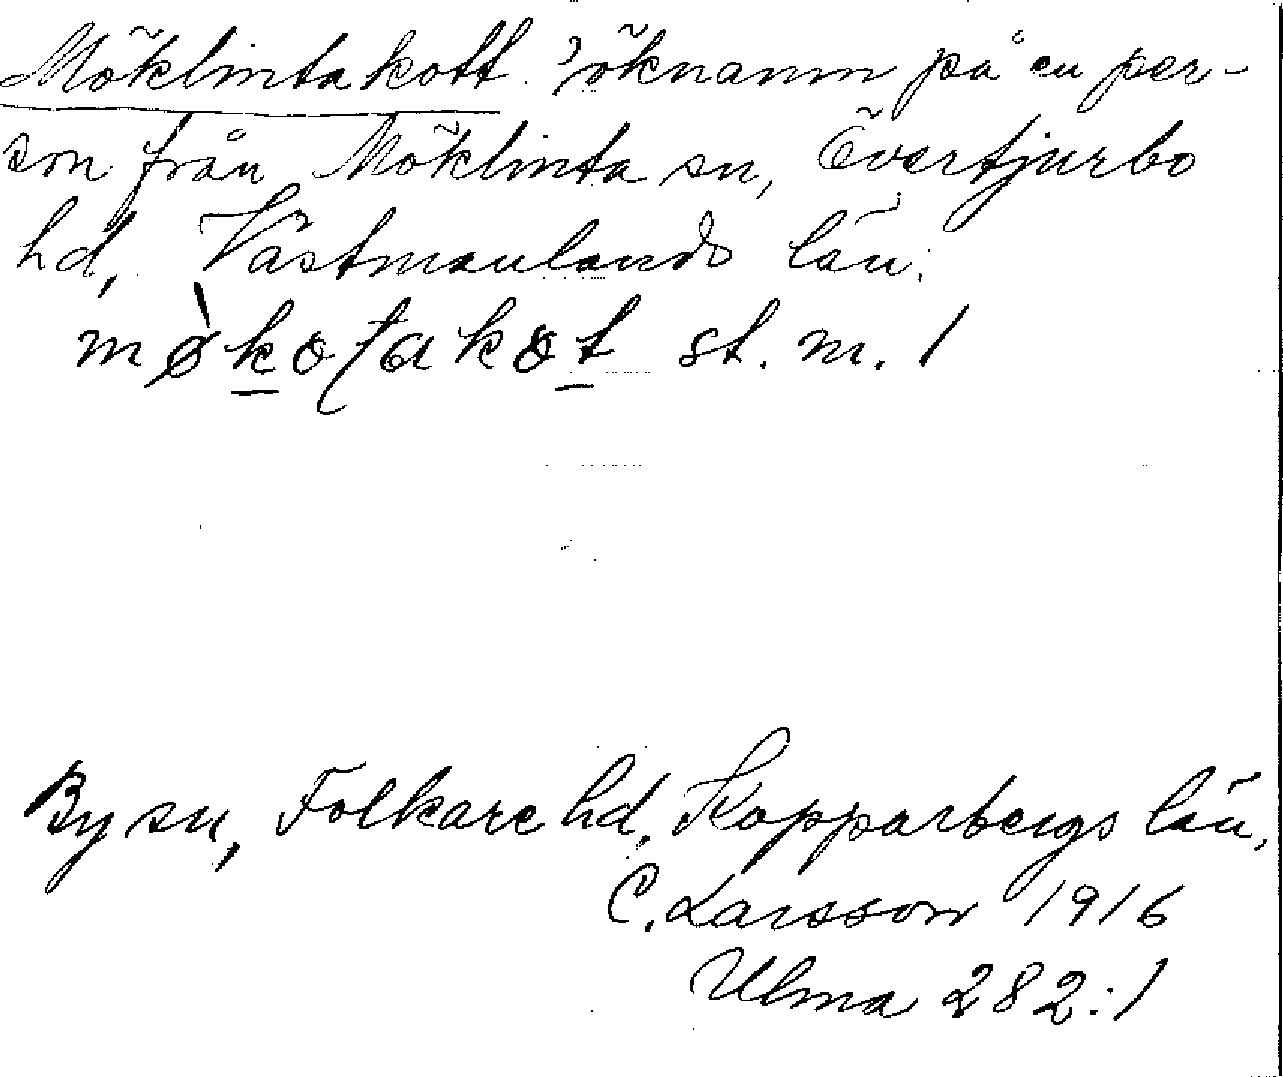 Möklintakott. öknamn på en per-
son från Möklinta sn, Övertjurbo
hd, Västmanlands län.
st. m. 1
By sn, Folkare hd, Kopparbergs län,
C. Larsson 1916
Ulma 282:1